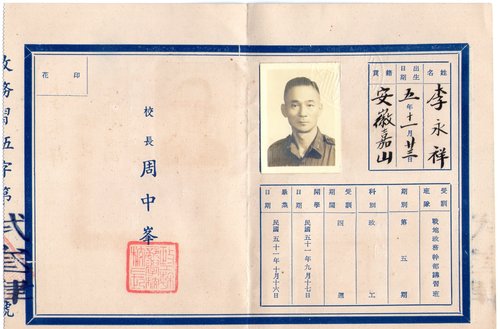 姓名 李永祥
出生日期 五年十一月廿三
籍貫 安徽嘉山
受訓班隊 戰地政務幹部講習班
期別 第五期
科別 政工
受訓期間 四週
開學日期 民國五十一年九月十七日
畢業日期 民國五十一年十月十六日
校長 周中峯
印花
政務習伍字第
號